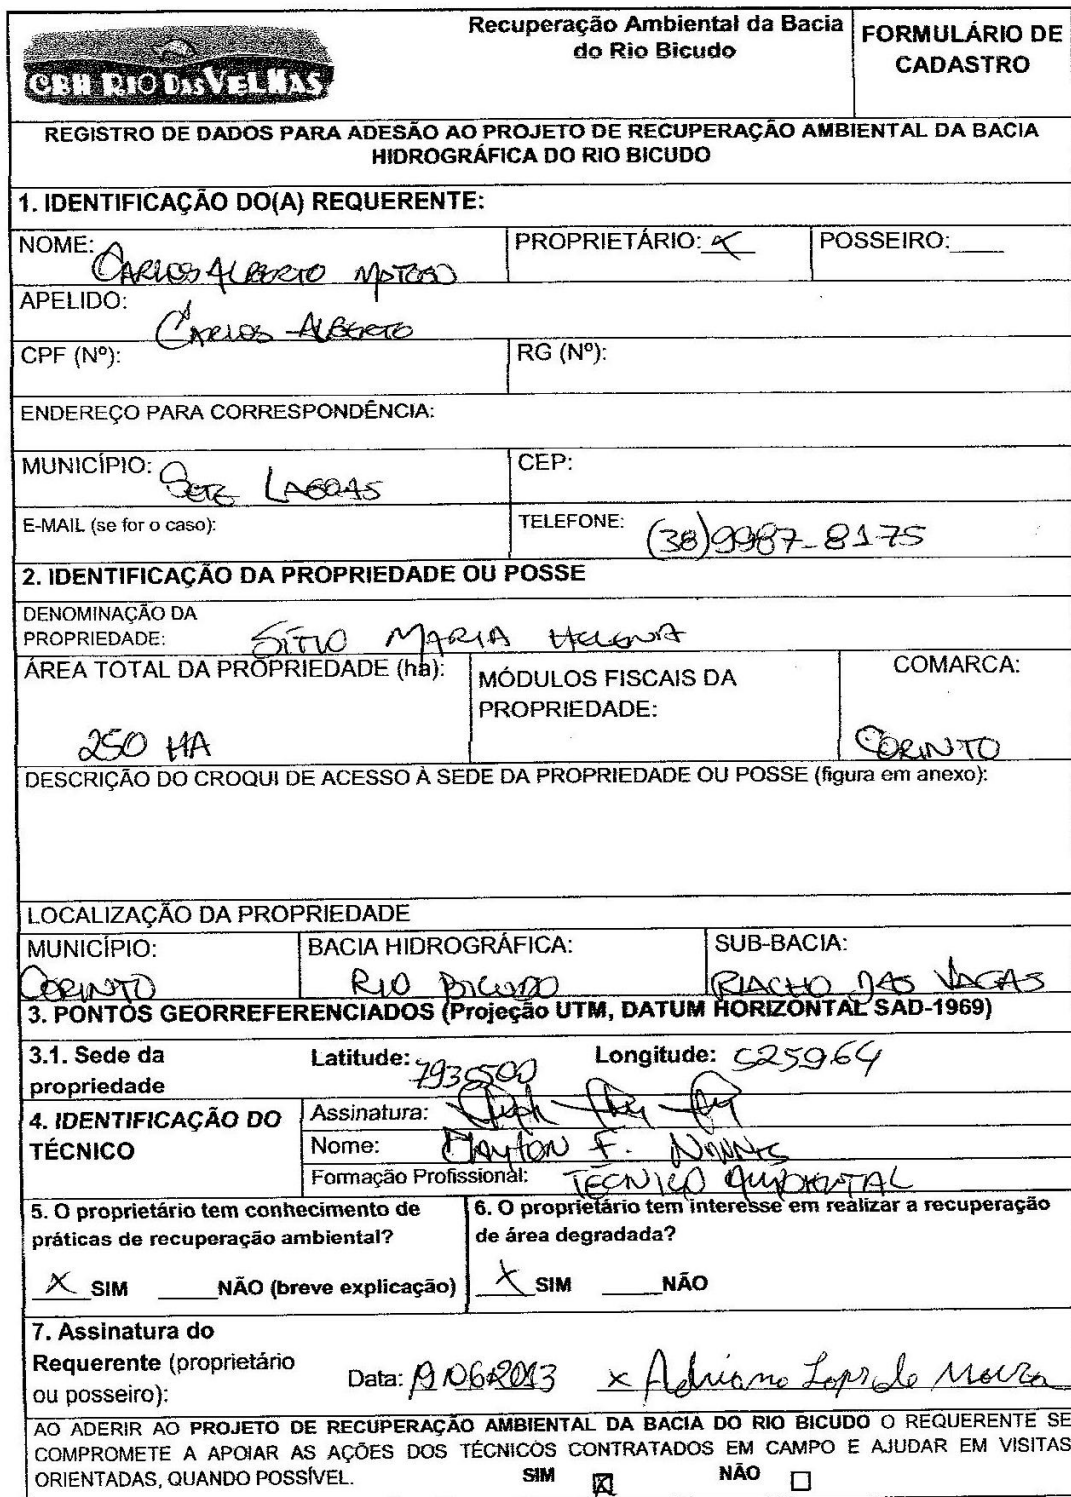 CBH RIO DAS VELHAS
Recuperação Ambiental da Bacia
do Rio Bicudo
FORMULÁRIO DE
CADASTRO
REGISTRO DE DADOS PARA ADESÃO AO PROJETO DE RECUPERAÇÃO AMBIENTAL DA BACIA
HIDROGRÁFICA DO RIO BICUDO
1. IDENTIFICAÇÃO DO(A) REQUERENTE:
NOME: CARLOS ALBERTO
PROPRIETÁRIO: X
POSSEIRO:____
APELIDO: CARLOS ALBERTO
CPF (Nº):
RG (Nº):
ENDEREÇO PARA CORRESPONDÊNCIA:
MUNICÍPIO: SETE LAGOAS
CEP:
E-MAIL (se for o caso):
TELEFONE: (38)9987-8175
2. IDENTIFICAÇÃO DA PROPRIEDADE OU POSSE
DENOMINAÇÃO DA
PROPRIEDADE: SÍTIO MARIA HELENA
ÁREA TOTAL DA PROPRIEDADE (ha):
250 HA
MÓDULOS FISCAIS DA
PROPRIEDADE:
COMARCA:
CORINTO
DESCRIÇÃO DO CROQUI DE ACESSO À SEDE DA PROPRIEDADE OU POSSE (figura em anexo):
LOCALIZAÇÃO DA PROPRIEDADE
MUNICÍPIO:
CORINTO
BACIA HIDROGRÁFICA:
RIO BICUDO
SUB-BACIA:
RIACHO DAS VACAS
3. PONTOS GEORREFERENCIADOS (Projeção UTM, DATUM HORIZONTAL SAD-1969)
3.1. Sede da
propriedade
Latitude: 7935500
Longitude: 525964
4. IDENTIFICAÇÃO DO
TÉCNICO
Assinatura:
Nome: CLAYTON F. NUNES
Formação Profissional: TÉCNICO AMBIENTAL
5. O proprietário tem conhecimento de
práticas de recuperação ambiental?
X SIM ____NÃO (breve explicação)
6. O proprietário tem interesse em realizar a recuperação
de área degradada?
X SIM ____NÃO
7. Assinatura do
Requerente (proprietário
ou posseiro):
Data: 19/06/2013 x Adriano Lopes de Moura
AO ADERIR AO PROJETO DE RECUPERAÇÃO AMBIENTAL DA BACIA DO RIO BICUDO O REQUERENTE SE
COMPROMETE A APOIAR AS AÇÕES DOS TÉCNICOS CONTRATADOS EM CAMPO E AJUDAR EM VISITAS
ORIENTADAS, QUANDO POSSÍVEL. SIM ☒ NÃO ☐